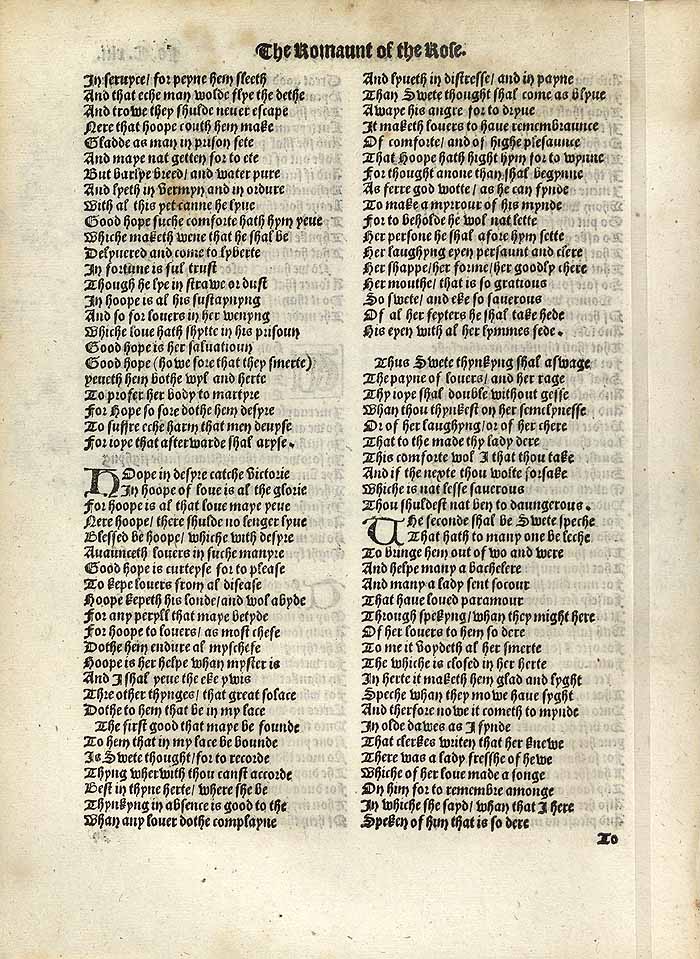 The Romaunt of the Rose.
In seruyce/ for peyne hem sleeth
And that eche man wolde flye the dethe
And trowe they shulde never escape
Nere that hoope couth hem make
Gladde as man in prison sete
And maye nat getten for to ete
But barlye breed/ and water pure
And lyeth in Vermyn and in ordure
With al this yet canne he lyue
Good hope suche comforte hath hym yeue
Whiche maketh wene that he shal be
Delyuered and come to lyberte
In fortune is ful trust
Though he lye in strawe or dust
In hoope is al his sustaynyng
And so for louers in her wenyng
Whiche loue hath shytte in his prisoun
Good hope is her saluatioun
Good hope (howe sore that they smerte)
yeueth hem bothe wyl and herte
To profer her body to martyre
For Hope so sore dothe hem desyre
To suffre eche harm that men deuyse
For ioye that afterwarde shal aryse.
HOope in desyre catche Victorie
In hoope of loue is al the glorie
For hoope is al that loue maye yeue
Nere hoope/ there shulde no lenger lyue
Blessed be hoope/ whiche with desyre
Auaunceth louers in suche manyre
Good hope is curteyse for to please
To kepe louers from al disease
Hoope kepeth his londe/ and wol abyde
For any peryll that maye betyde
For hoope to louers/ as most chefe
Dothe hem endure al myschefe
Hoope is her helpe whan myster is
And I shal yeue the eke ywis
Thre other thynges/ that great solace
Dothe to hem that be in my lace
The first good that maye be founde
To hem that in my lace be bounde
Is Swete thought/ for to recorde
Thyng wherwith thou canst accorde
Best in thyne herte/ where she be
Thynkyng in absence is good to the
Whan any louer dothe complayne
And lyueth in distresse/ and in payne
Than Swete thought shal come as blyue
Awaye his angre for to dryue
It maketh louers to haue remembraunce
Of comforte/ and of highe plesaunce
That Hoope hath hight hym for to wynne
For thought anone than shal begynne
As ferre god wotte/ as he can fynde
To make a myrrour of his mynde
For to beholde he wol nat lette
Her persone he shal afore hym sette
Her laughyng eyen persaunt and clere
Her shappe/ her forme/ her goodly chere
Her mouthe/ that is so gratious
So swete/ and eke so sauerous
Of al her feyters he shal take hede
His eyen with al her lymmes fede.
Thus Swete thynkyng shal aswage
The payne of louers/ and her rage
Thy ioye shal double without gesse
Whan thou thynkest on her semelynesse
Or of her laughyng/ or of her chere
That to the made thy lady dere
This comforte wol I that thou take
And if the nexte thou wolte forsake
Whiche is nat lesse sauerous
Thou shuldest nat ben to daungerous.
THe seconde shal be Swete speche
That hath to many one be leche
To bringe hem out of wo and were
And helpe many a bachelere
And many a lady sent socour
That haue loued paramour
Through spekyng/ whan they might here
Of her louers to hem so dere
To me it voydeth al her smerte
The whiche is closed in her herte
In herte it maketh hem glad and lyght
Speche whan they mowe haue syght
And therfore nowe it cometh to mynde
In olde dawes as I fynde
That clerkes writen that her knewe
There was a lady fresshe of hewe
Whiche of her loue made a songe
On him for to remembre amonge
In whiche she sayd/ whan that I here
Speken of him that is so dere
To